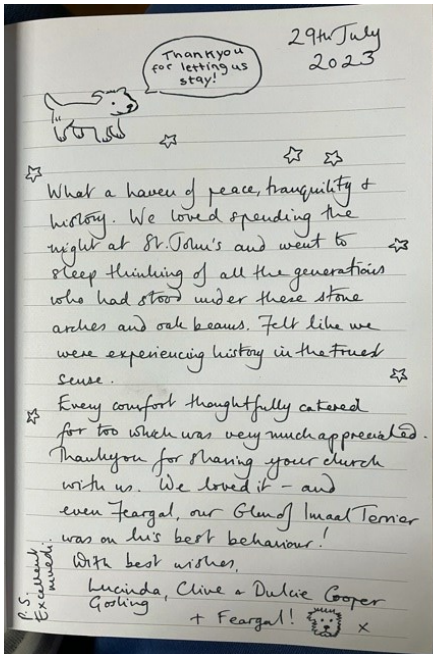 29th July
2023
Thankyou
for letting us
stay!
What a haven of peace, tranquility &
history. We loved spending the
night at St. John's and went to
sleep thinking of all the generations
who had stood under these stone
arches and oak beams. Felt like we
were experiencing history in the truest
sense.
Every comfort thoughtfully catered
for too which was very much appreciated.
Thankyou for sharing your church
with us. We loved it – and
even Feargal, our Glen of Imaal Terrier
was on his best behaviour!
With best wishes,
Lucinda, Clive & Dulcie Cooper
Gosling
+ Feargal! x
P.S.
Excellent